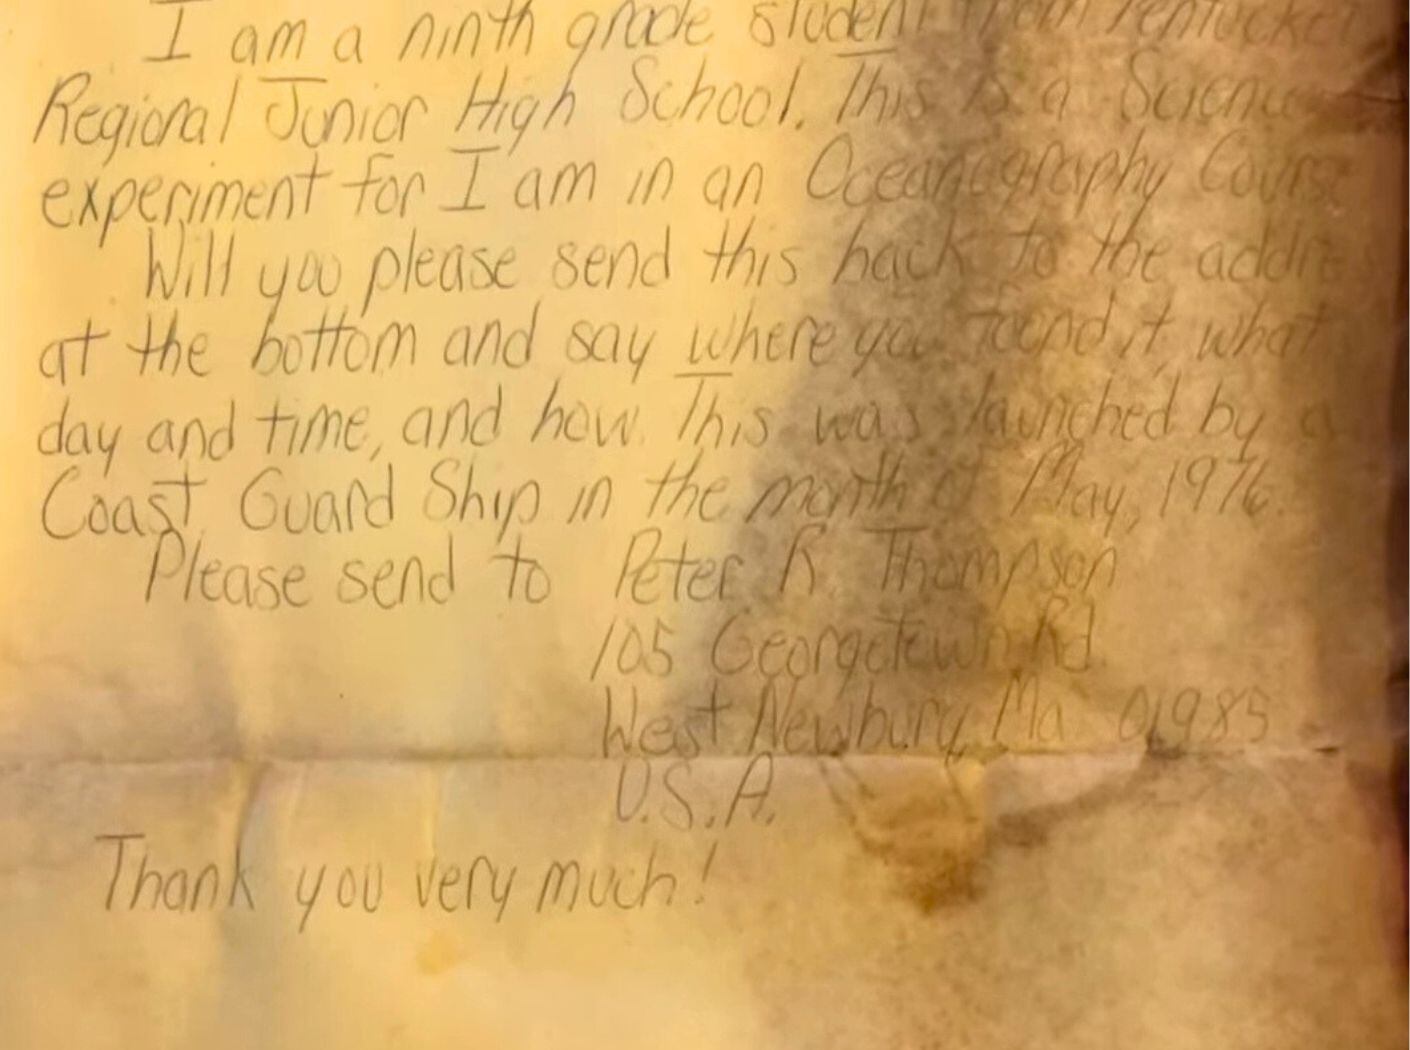 I am a ninth grade student from Pentucket
Regional Junior High School. This is a Science
experiment for I am in an Oceanography Course
Will you please send this back to the addre
at the bottom and say where you found it, what
day and time, and how. This was launched by a
Coast Guard Ship in the month of May, 1976.
Please send to Peter R Thompson
105 Georgetown Rd.
West Newbury, Ma 01985
U.S.A.
Thank you very much!